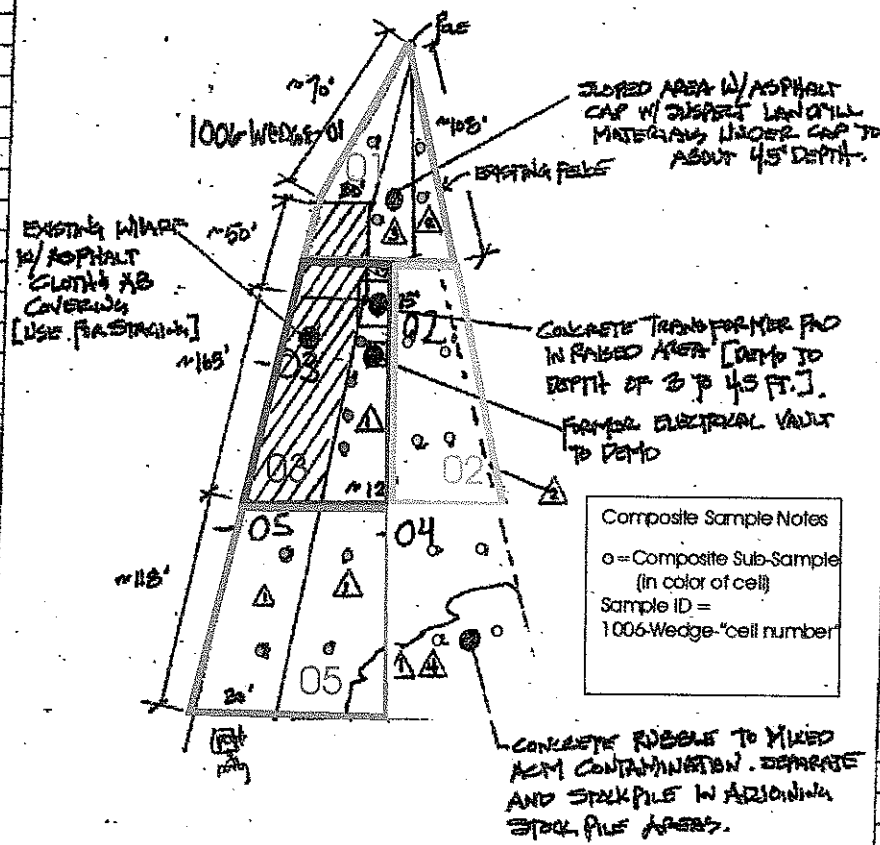 ~70'
1006-WEDGE-01
01
~108'
SLOPED AREA W/ASPHALT
CAP W/ SUSPECT LANDFILL
MATERIALS UNDER CAP TO
ABOUT 4.5' DEPTH.
EXISTING
3
EXISTING
W/ ASPHALT
COVERING
[USE FOR STAGING]
~50'
~165'
15'
02
03
1
03
~12
02
2
CONCRETE TRANSFORMER PAD
IN RAISED AREA [DEMO TO
DEPTH OF 3 TO 4.5 FT.].
FORMER ELECTRICAL VAULT
TO DEMO
Composite Sample Notes
o=Composite Sub-Sample
(in color of cell)
Sample ID =
1006-Wedge-"cell number"
05
04
~118'
1
1
1
4
05
CONCRETE RUBBLE TO MIXED
ACM CONTAMINATION. SEPARATE
AND STOCKPILE IN ADJOINING
STOCK PILE AREAS.